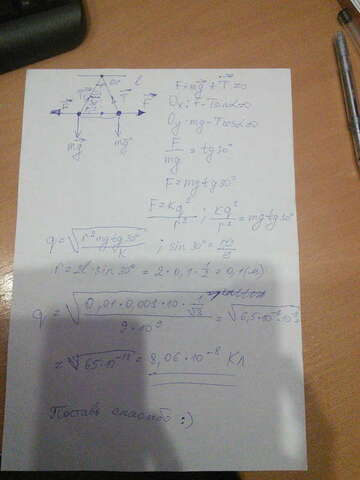 α l
T T
F F
mg mg
F + mg + T = 0
Ox: F - Tsinα = 0
Oy: mg - Tcosα = 0
F/mg = tg30°
F = mgtg30°
F = kq²/r² ; kq²/r² = mgtg30°
q = √(r²mgtg30°/k) ; sin30° =
r = 2l·sin30° = 2·0,1·1/2 = 0,1(м)
q = √(0,01·0,001·10·1/√3 / 9·10⁹) =
= √65·10⁻¹⁶ = 8,06·10⁻⁸ Кл
Поставь спасибо :)